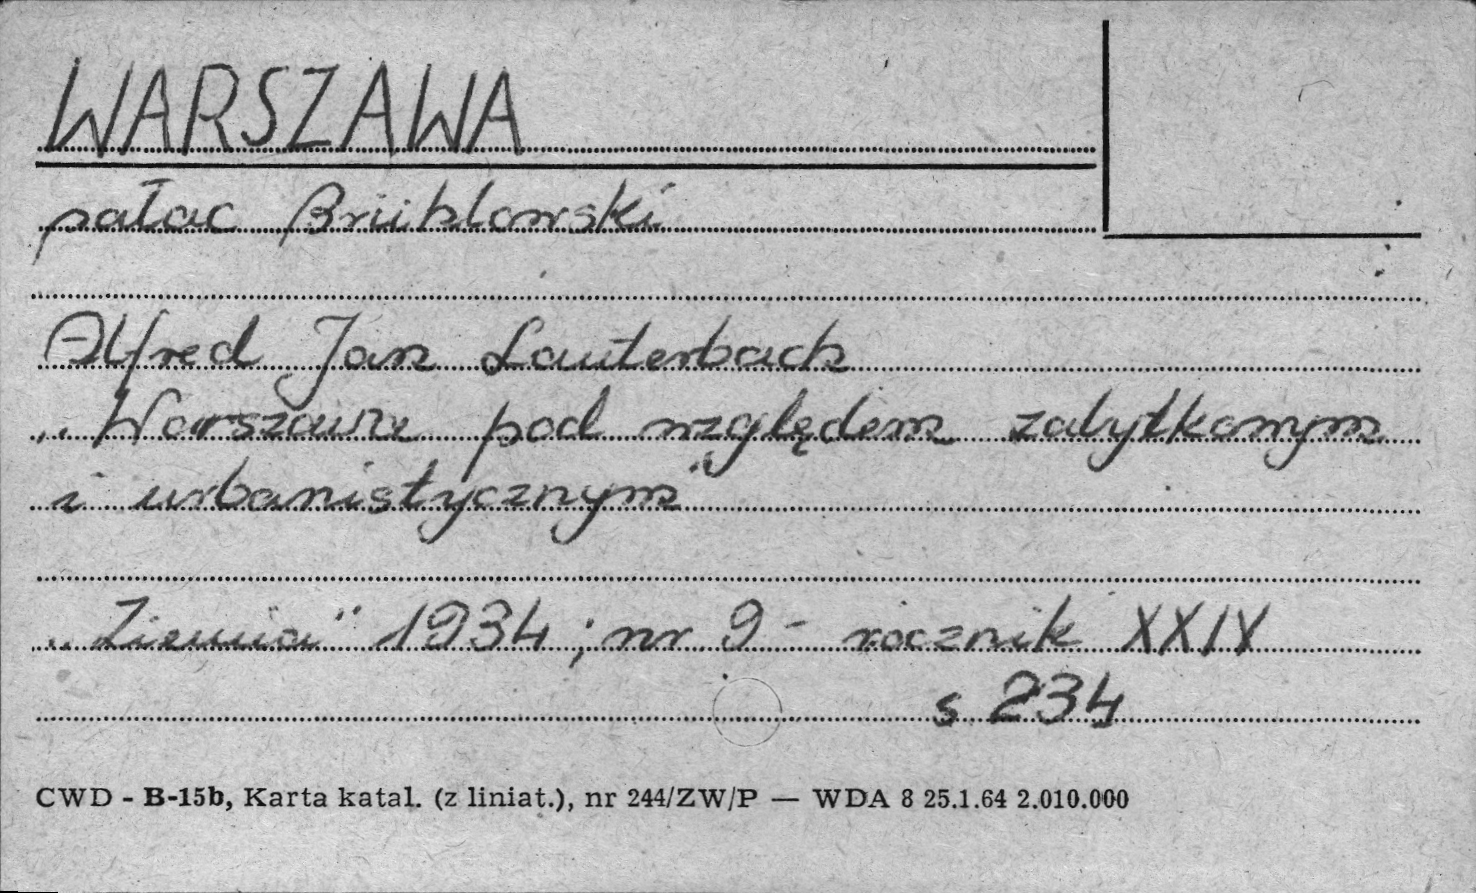 WARSZAWA
pałac Brühlowski
Alfred Jan Lauterbach
„Warszawa pod względem zabytkowym
i urbanistycznym"
„Ziemia" 1934; nr 9 - rocznik XXIX
s 234
CWD - B-15b, Karta katal. (z liniat.), nr 244/ZW/P — WDA 8 25.1.64 2.010.000